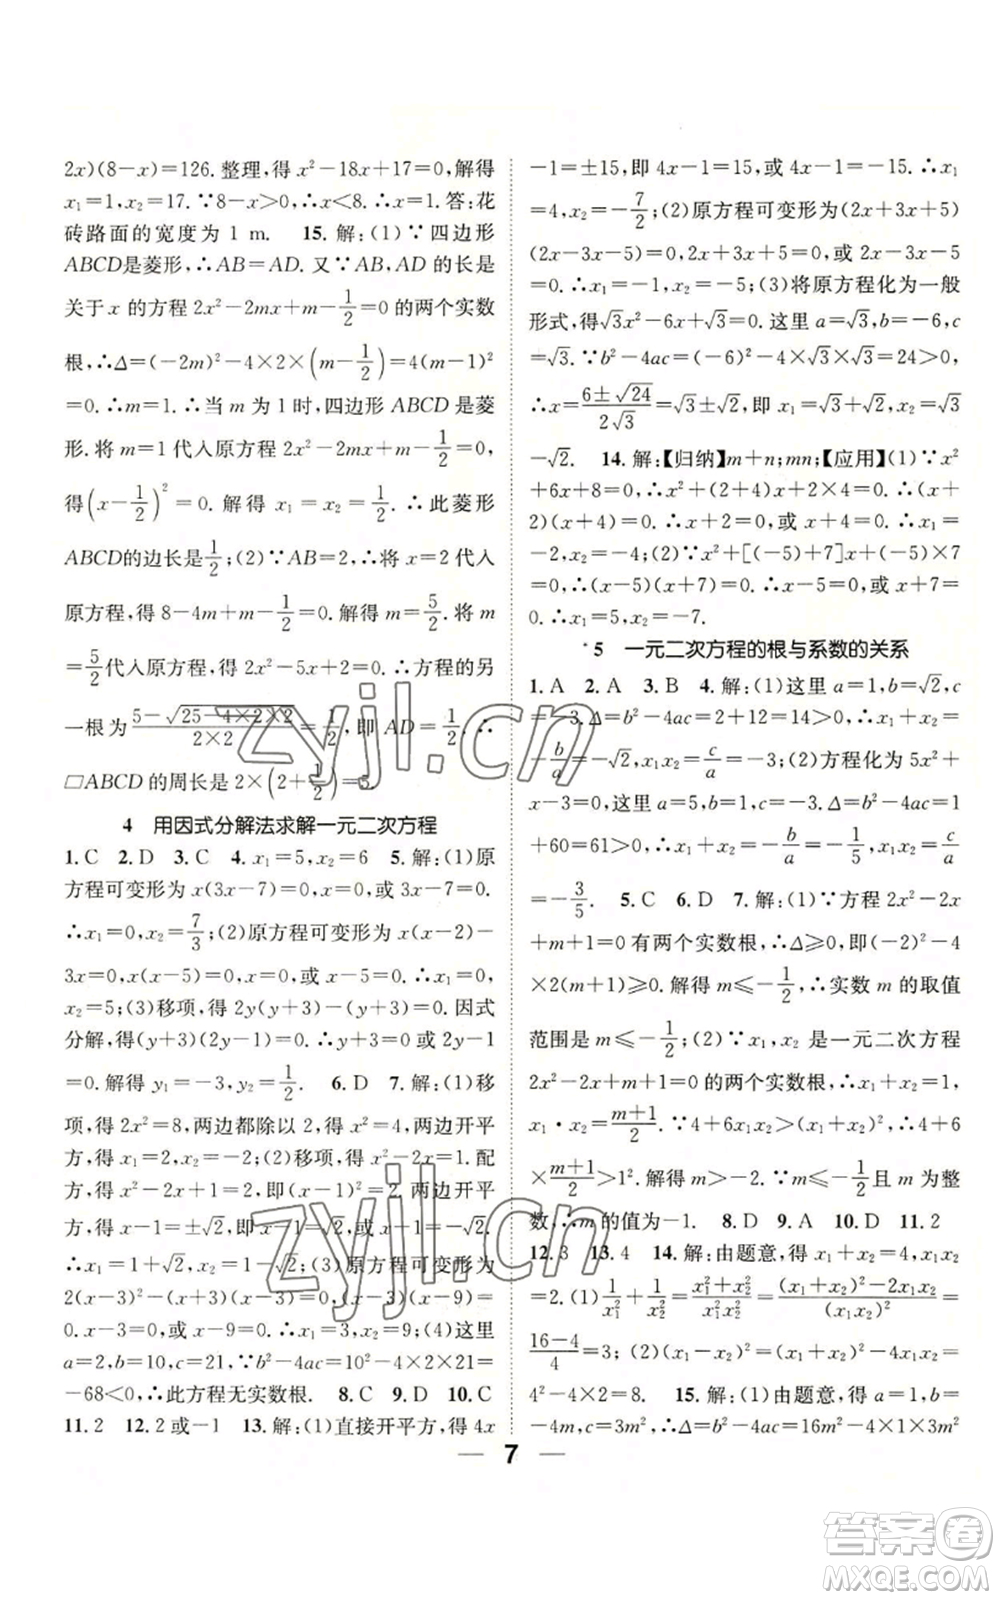 2x)(8－x)＝126. 整理,得 x²－18x＋17＝0,解得
x₁＝1,x₂＝17. ∵8－x＞0,∴x＜8. ∴x＝1. 答:花
砖路面的宽度为 1 m. 15. 解:(1)∵四边形
ABCD是菱形,∴AB＝AD. 又∵AB,AD 的长是
关于 x 的方程 2x²－2mx＋m－1/2＝0 的两个实数
根,∴Δ＝(－2m)²－4×2×(m－1/2)＝4(m－1)²
＝0. ∴m＝1. ∴当 m 为 1 时,四边形 ABCD 是菱
形. 将 m＝1 代入原方程 2x²－2mx＋m－1/2＝0,
得(x－1/2)²＝0. 解得 x₁＝x₂＝1/2. ∴此菱形
ABCD的边长是1/2;(2)∵AB＝2,∴将 x＝2 代入
原方程,得 8－4m＋m－1/2＝0. 解得 m＝5/2. 将 m
＝5/2代入原方程,得 2x²－5x＋2＝0. ∴方程的另
一根为(5－√(25－4×2×2))/(2×2)＝1/2,即 AD＝1/2. ∴
□ABCD 的周长是 2×(2＋1/2)＝5.
4 用因式分解法求解一元二次方程
1. C 2. D 3. C 4. x₁＝5,x₂＝6 5. 解:(1)原
方程可变形为 x(3x－7)＝0. x＝0,或 3x－7＝0.
∴x₁＝0,x₂＝7/3;(2)原方程可变形为 x(x－2)－
3x＝0,x(x－5)＝0,x＝0,或 x－5＝0. ∴x₁＝0,
x₂＝5;(3)移项,得 2y(y＋3)－(y＋3)＝0. 因式
分解,得(y＋3)(2y－1)＝0. ∴y＋3＝0 或 2y－1
＝0. 解得 y₁＝－3,y₂＝1/2. 6. D 7. 解:(1)移
项,得 2x²＝8,两边都除以 2,得 x²＝4,两边开平
方,得 x₁＝2,x₂＝－2;(2)移项,得 x²－2x＝1. 配
方,得 x²－2x＋1＝2,即(x－1)²＝2. 两边开平
方,得 x－1＝±√2,即x－1＝√2,或x－1＝－√2.
∴x₁＝1＋√2,x₂＝1－√2;(3)原方程可变形为
2(x－3)²－(x＋3)(x－3)＝0,(x－3)(x－9)＝
0. x－3＝0,或 x－9＝0. ∴x₁＝3,x₂＝9;(4)这里
a＝2,b＝10,c＝21,∵b²－4ac＝10²－4×2×21＝
－68＜0,∴此方程无实数根. 8. C 9. D 10. C
11. 2 12. 2 或－1 13. 解:(1)直接开平方,得 4x
－1＝±15,即 4x－1＝15,或 4x－1＝－15. ∴x₁
＝4,x₂＝－7/2;(2)原方程可变形为(2x＋3x＋5)
(2x－3x－5)＝0,2x＋3x＋5＝0,或 2x－3x－5
＝0. ∴x₁＝－1,x₂＝－5;(3)将原方程化为一般
形式,得√3x²－6x＋√3＝0. 这里 a＝√3,b＝－6,c＝
√3. ∵b²－4ac＝(－6)²－4×√3×√3＝24＞0,
∴x＝(6±√24)/(2√3)＝√3±√2,即 x₁＝√3＋√2,x₂＝√3
－√2. 14. 解:【归纳】m＋n;mn;【应用】(1)∵x²
＋6x＋8＝0,∴x²＋(2＋4)x＋2×4＝0. ∴(x＋
2)(x＋4)＝0. ∴x＋2＝0,或 x＋4＝0. ∴x₁＝
－2,x₂＝－4;(2)∵x²＋[(－5)＋7]x＋(－5)×7
＝0,∴(x－5)(x＋7)＝0. ∴x－5＝0,或 x＋7＝
0. ∴x₁＝5,x₂＝－7.
*5 一元二次方程的根与系数的关系
1. A 2. A 3. B 4. 解:(1)这里 a＝1,b＝√2,c
＝－3. Δ＝b²－4ac＝2＋12＝14＞0,∴x₁＋x₂＝
－b/a＝－√2,x₁x₂＝c/a＝－3;(2)方程化为 5x²＋
x－3＝0. 这里 a＝5,b＝1,c＝－3. Δ＝b²－4ac＝1
＋60＝61＞0,∴x₁＋x₂＝－b/a＝－1/5,x₁x₂＝c/a
＝－3/5. 5. C 6. D 7. 解:(1)∵方程 2x²－2x
＋m＋1＝0 有两个实数根,∴Δ≥0,即(－2)²－4
×2(m＋1)≥0. 解得 m≤－1/2,∴实数 m 的取值
范围是 m≤－1/2;(2)∵x₁,x₂ 是一元二次方程
2x²－2x＋m＋1＝0 的两个实数根,∴x₁＋x₂＝1,
x₁·x₂＝(m＋1)/2. ∵4＋6x₁x₂＞(x₁＋x₂)²,∴4＋6
×(m＋1)/2＞1². 解得 m＞－2. ∵m≤－1/2且 m 为整
数,∴m的值为－1. 8. D 9. A 10. D 11. 2
12. 3 13. 4 14. 解:由题意,得 x₁＋x₂＝4,x₁x₂
＝2. (1)1/x₁²＋1/x₂²＝(x₁²＋x₂²)/(x₁²x₂²)＝((x₁＋x₂)²－2x₁x₂)/(x₁x₂)²＝
(16－4)/4＝3; (2)(x₁－x₂)²＝(x₁＋x₂)²－4x₁x₂＝
4²－4×2＝8. 15. 解:(1)由题意,得 a＝1,b＝
－4m,c＝3m²,∴Δ＝b²－4ac＝(－4m)²－4×1×3m²
7
zyjl.cn
zyjl.cn
答案圈
MXQE.COM